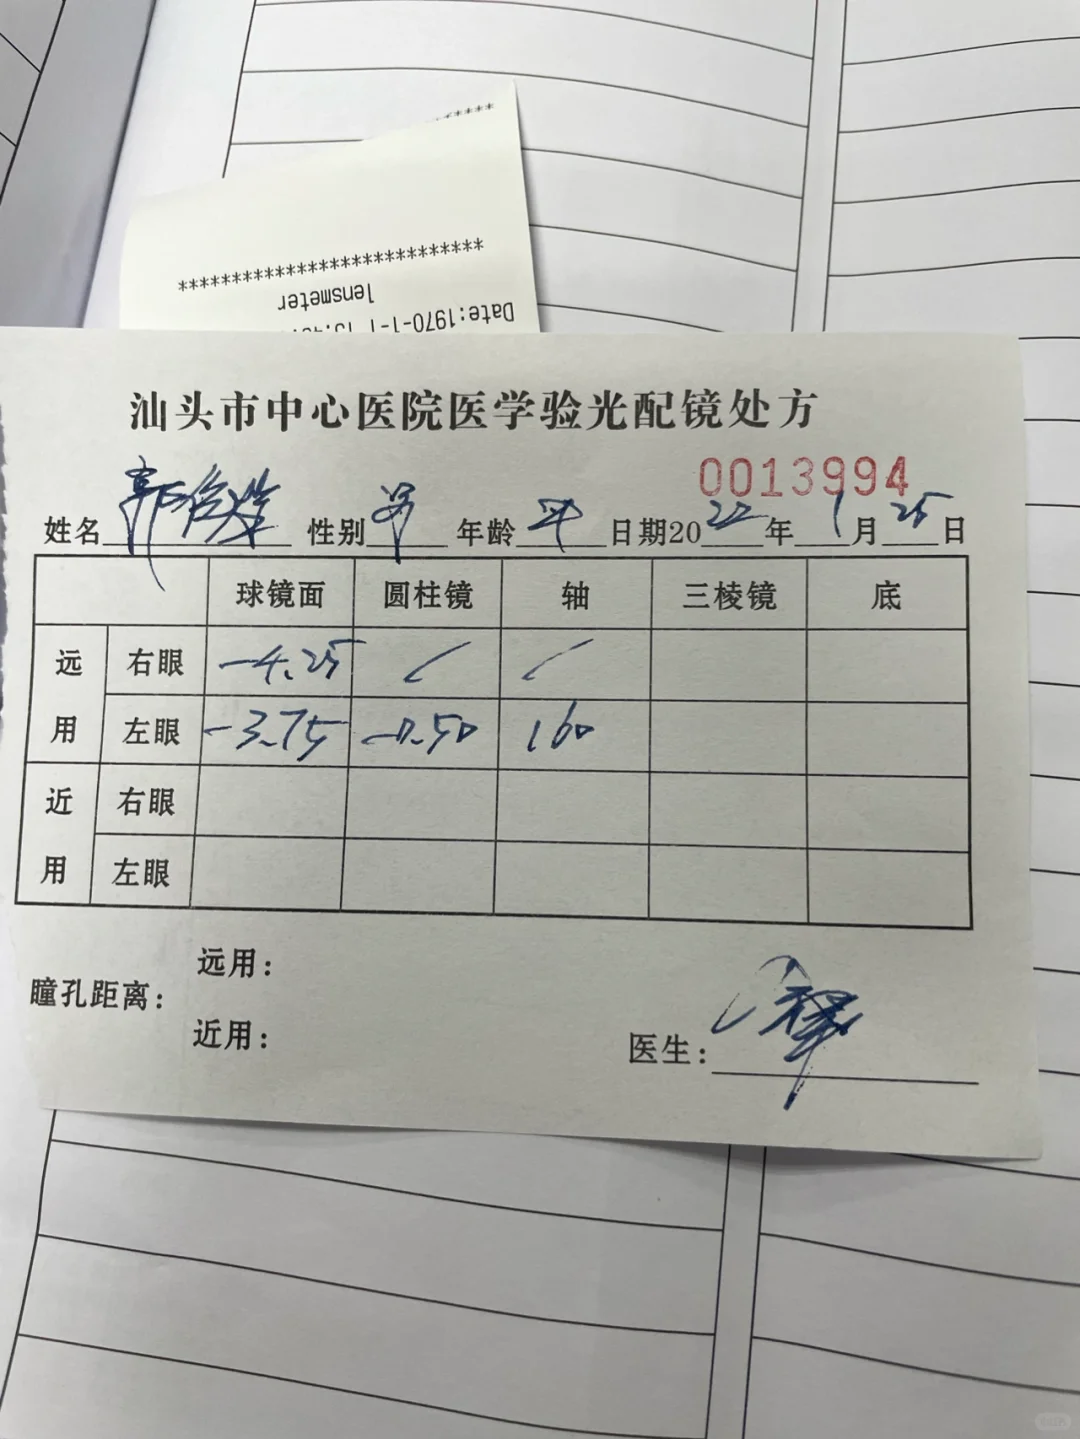 ****
****************************
lensmeter
Date:1970-1-1
汕头市中心医院医学验光配镜处方
0013994
姓名 郭 性别 男 年龄 日期2022年1月25日
球镜面 圆柱镜 轴 三棱镜 底
远用 右眼 -4.25 / /
左眼 -3.75 -0.50 160
近用 右眼
左眼
瞳孔距离: 远用:
近用:
医生: